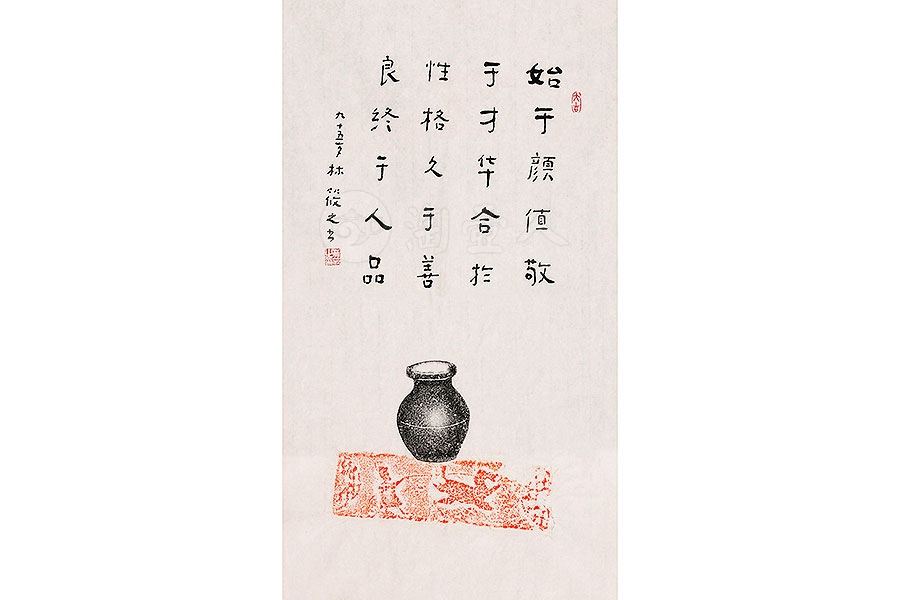 始于顔值敬
于才华合於
性格久于善
良終于人品
九十五岁林筱之书
大吉